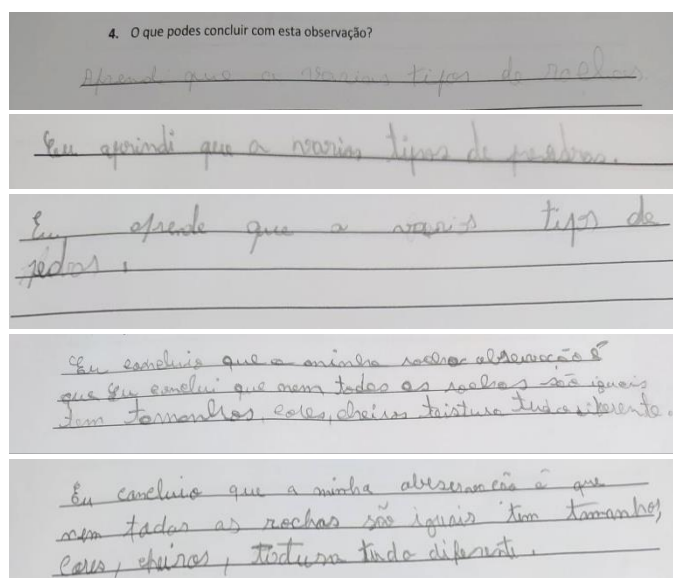 4. O que podes concluir com esta observação?
Aprend que a varios tipos de rochas
Eu aprindi que a varios tipos de pedras.
Eu aprende que a varis tips de
pedas.
Eu concluio que a minha observação é
que Eu conclui que nem todos as rochas são iguais
tem tamanhos, cores, cheiros tudo
Eu concluio que a minha é que
nem todas as rochas são iguais tem tamanhos,
cores, cheiros, tudo diferente.